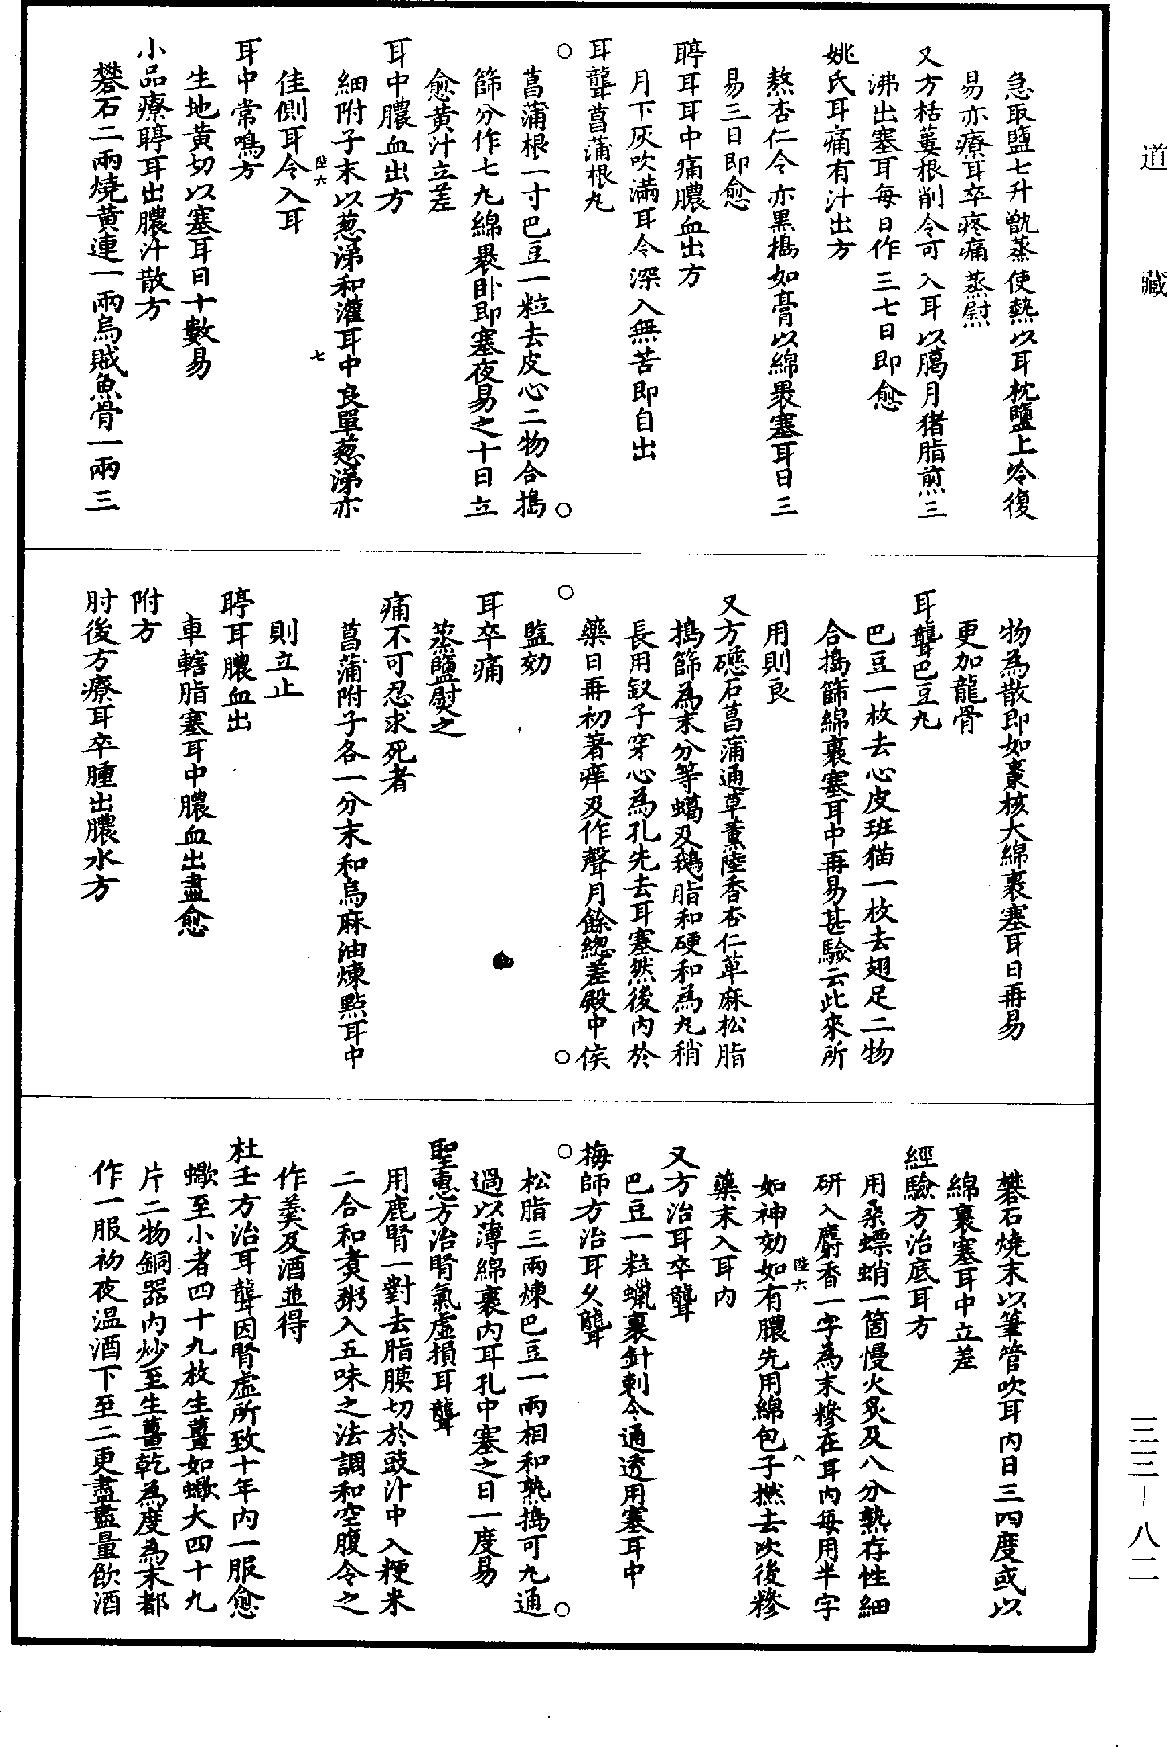 道藏
急取鹽七升甑蒸使熱以耳枕鹽上冷復
易亦療耳卒疼痛蒸熨
又方栝蔞根削令可入耳以臈月猪脂煎三
沸出塞耳每日作三七日即愈
姚氏耳痛有汁出方
熬杏仁令赤黒搗如膏以綿褁塞耳日三
易三日即愈
聤耳耳中痛膿血出方
月下灰吹滿耳令深入無苦即自出
耳聾菖蒲根丸
菖蒲根一寸巴豆一粒去皮心二物合搗
篩分作七丸綿褁卧即塞夜易之十日立
愈黄汁立差
耳中膿血出方
細附子末以葱涕和灌耳中良單葱涕亦
佳側耳令入耳
陸六 七
耳中常鳴方
生地黄切以塞耳日十數易
小品療聤耳出膿汁散方
礬石二兩燒黄連一兩烏賊魚骨一兩三
物為散即如棗核大綿裹塞耳日再易
更加龍骨
耳聾巴豆丸
巴豆一枚去心皮班猫一枚去翅足二物
合搗篩綿裹塞耳中再易甚驗云此來所
用則良
又方磁石菖蒲通草薰陸香杏仁萆麻松脂
搗篩為末分等蠟及鵝脂和硬和為丸稍
長用釵子穿心為孔先去耳塞然後内於
藥日再初著痒及作聲月餘總差殿中侯
監効
耳卒痛
蒸鹽熨之
痛不可忍求死者
菖蒲附子各一分末和烏麻油煉點耳中
則立止
聤耳膿血出
車轄脂塞耳中膿血出盡愈
附方
肘後方療耳卒腫出膿水方
礬石燒末以筆管吹耳内日三四度或以
綿裹塞耳中立差
經驗方治底耳方
用桑螵蛸一箇慢火炙及八分熟存性細
研入麝香一字為末糝在耳内每用半字
如神効如有膿先用綿包子撚去吹後糝
陸六 八
藥末入耳内
又方治耳卒聾
巴豆一粒蠟裹針刺令通透用塞耳中
梅師方治耳久聾
松脂三兩煉巴豆一兩相和熟搗可丸通
過以薄綿裹内耳孔中塞之日一度易
聖惠方治腎氣虛損耳聾
用鹿腎一對去脂膜切於豉汁中入粳米
二合和煑粥入五味之法調和空腹令之
作羹及酒並得
杜壬方治耳聾因腎虛所致十年内一服愈
蠍至小者四十九枚生薑如蠍大四十九
片二物銅器内炒至生薑乾為度為末都
作一服初夜温酒下至二更盡盡量飲酒
三三—八二